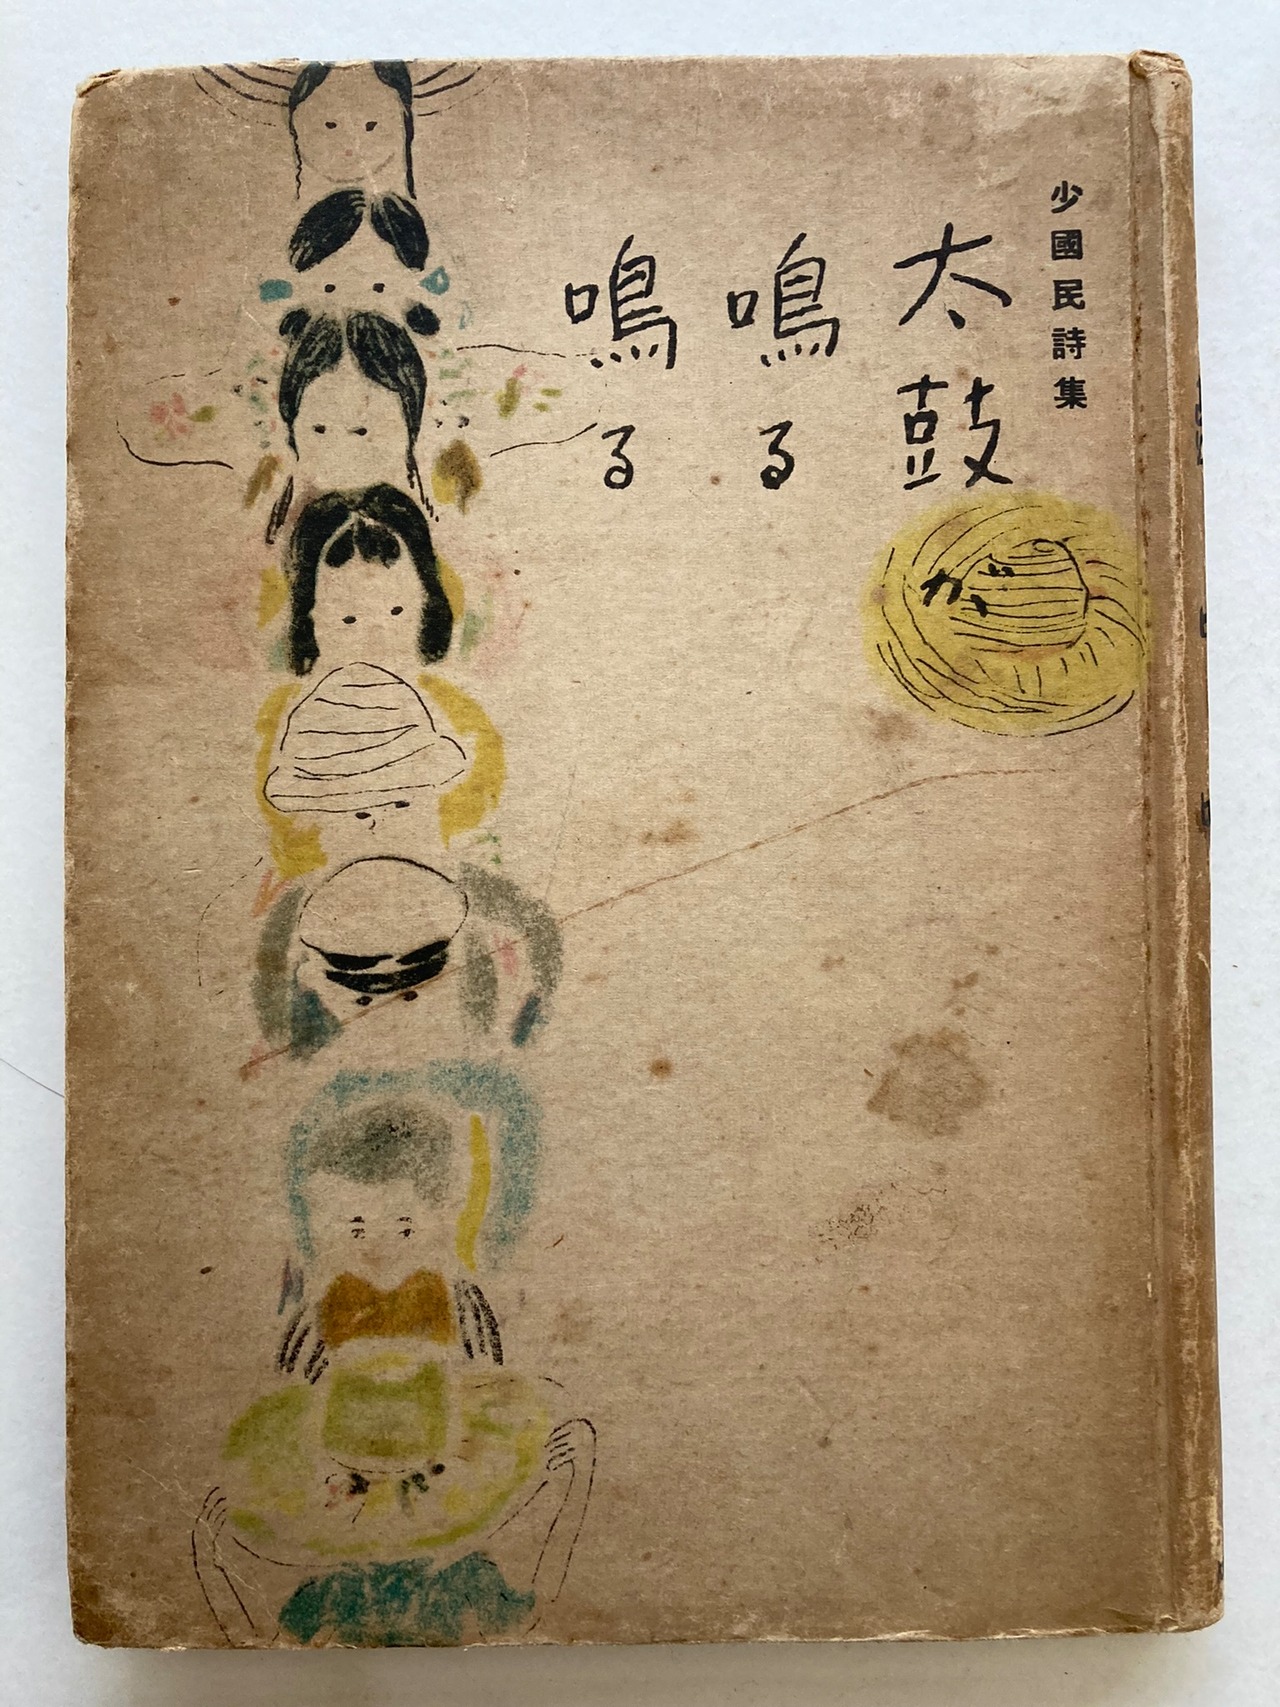 少國民詩集
太鼓が
鳴る
鳴る